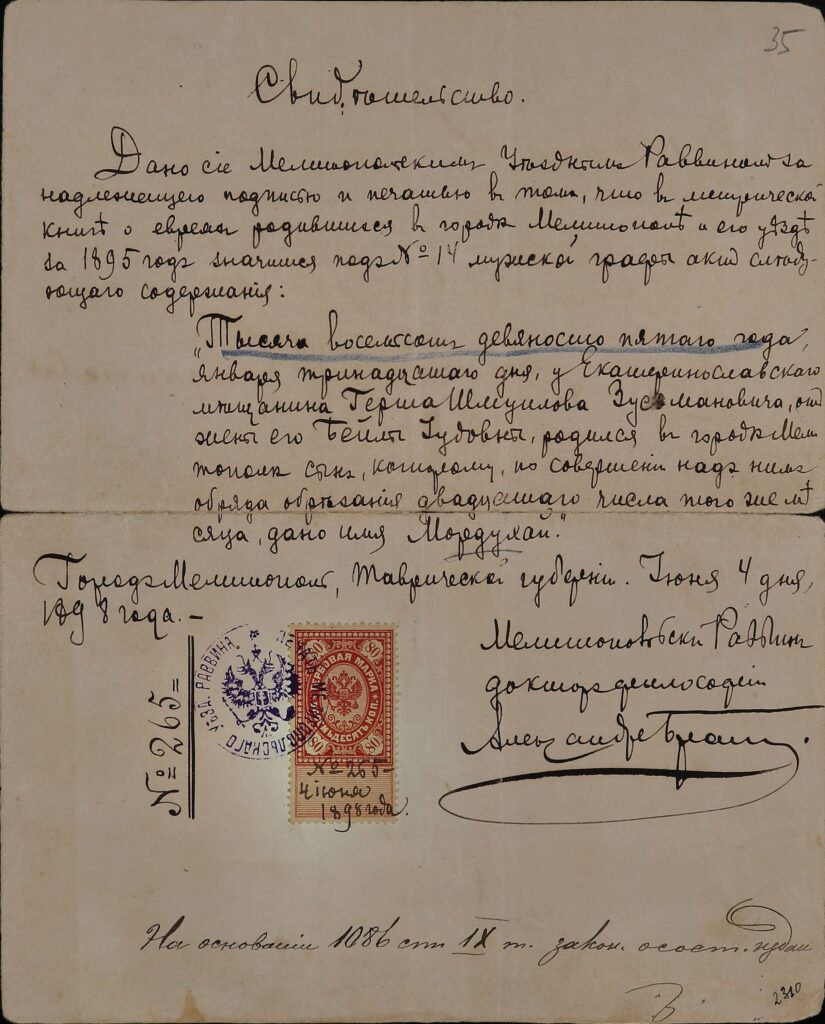 35
Свидѣтельство.
Дано сіе Мелитопольскимъ Уѣзднымъ Раввиномъ за
надлежащею подписью и печатью въ томъ, что въ метрической
книгѣ о евреяхъ родившихся въ городѣ Мелитополѣ и его уѣздѣ
за 1895 годъ значится подъ № 14 мужской графы актъ слѣду-
ющаго содержанія:
"Тысяча восемьсотъ девяносто пятаго года,
января тринадцатаго дня, у Екатеринославскаго
мѣщанина Герша Шмуилова Зусмановича, отъ
жены его Бейлы Іудовны, родился въ городѣ Мели
тополѣ сынъ, которому, по совершеніи надъ нимъ
обряда обрѣзанія двадцатаго числа того же мѣ
сяца, дано имя Мордухай."
Городъ Мелитополь, Таврической губерніи. Іюня 4 дня,
1898 года.-
Мелитопольскій Раввинъ
докторъ философіи
Александръ
№ 265=
УѢЗД. РАВВИНА МЕЛИТОПОЛЬСКАГО
80 80
ГЕРБОВАЯ МАРКА
ВОСЕМЬДЕСЯТЪ КОП.
80 80
№ 265-
4 іюня
1898 года.
На основаніи 1086 ст. IX т. закон. о сост. издан
2310